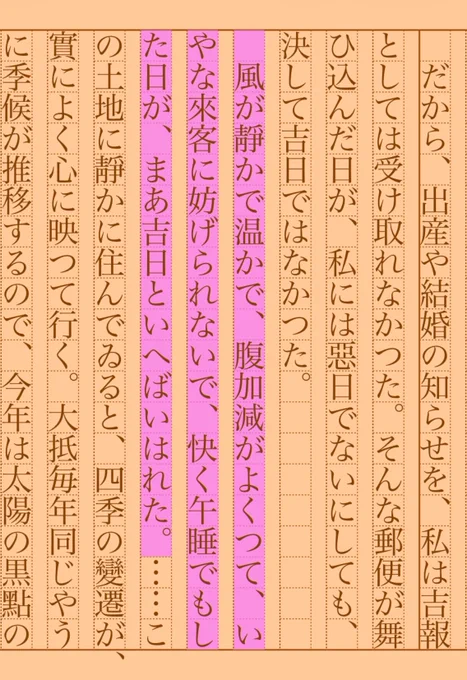 だから、出産や結婚の知らせを、私は吉報
としては受け取れなかつた。そんな郵便が舞
ひ込んだ日が、私には惡日でないにしても、
決して吉日ではなかつた。
風が靜かで温かで、腹加減がよくつて、い
やな來客に妨げられないで、快く午睡でもし
た日が、まあ吉日といへばいはれた。……こ
の土地に靜かに住んでゐると、四季の變遷が、
實によく心に映つて行く。大抵毎年同じやう
に季候が推移するので、今年は太陽の黒點の